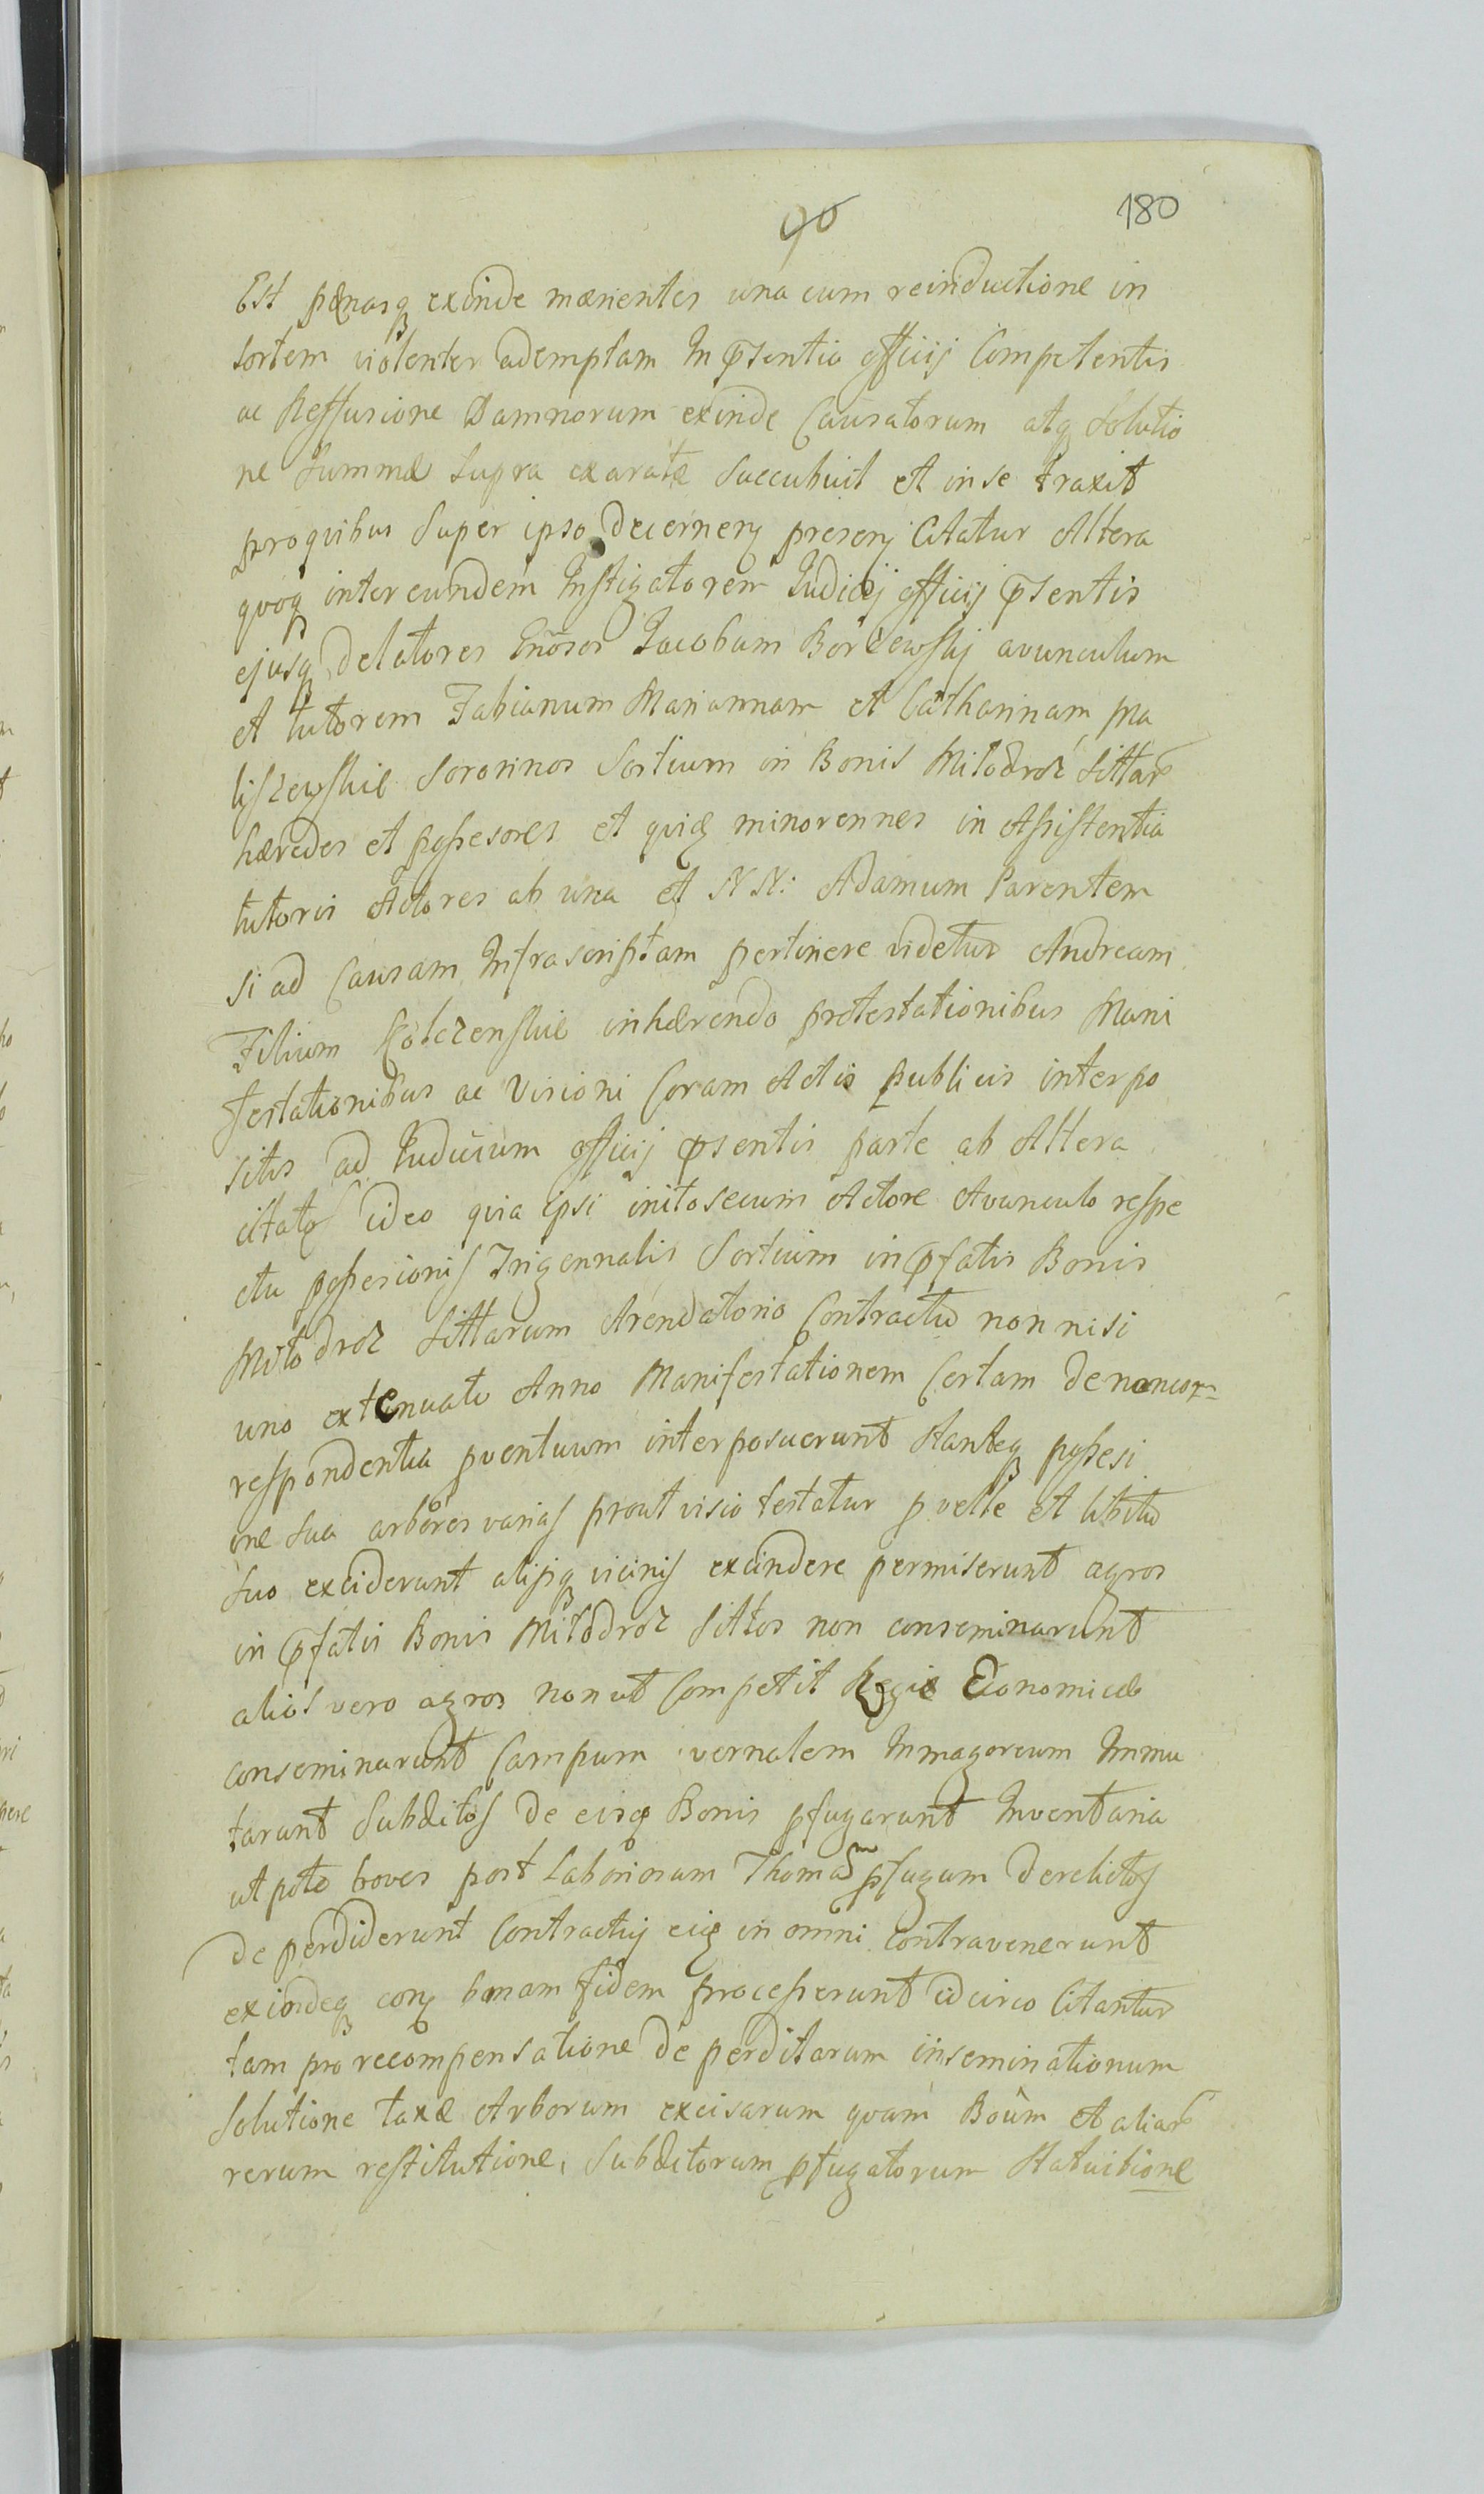 90
180
Est pænasq exinde mærentes una cum reinductione in
sortem violenter ademptam In psentia officij Competentis
ac Reffusione Damnorum exinde Causatorum atq Solutio
ne Summæ Supra exaratæ Succubuit et in se traxit
pro quibus Super ipso Decerneñ preseñ Citatur Altera
quoq inter eundem Instigatorem Iudicij officij psentis
ejusq delatores Gñosos Jacobum Borzewskj avunculum
et tutorem Fabianum Mariannam et Catharinam Ma
liszewskie Sororinos Sortium in Bonis Miłodroż Sittar
hæredes et possesores et quiq minorennes in Assistentia
tutoris Actores ab una et NN: Adamum Parentem
si ad Causam Infrascriptam pertinere videtur Andream
Filium inhærendo protestationibus Mani
festationibus ac Visioni Coram Actis publicis interpo
sitis ad Iudicium officij psentis parte ab Altera
citatos ideo quia ipsi inito secum Actore Avunculo respe
ctu possesionis Trigennalis Sortium in pfatis Bonis
Miłodroż Sittarum Arendatorio Contractu non nisi
uno extenuato Anno Manifestationem Certam de noncor=
respondentia pventuum interposuerunt stanteq possesi
one sua arbores varias prout visio testatur p velle et libitu
suo exciderunt alijsq vicinis excindere permiserunt agros
in pfatis Bonis Miłodroż Sittos non conseminarunt
alios vero agros non ut Competit Regiæ Economicæ
conseminarunt Campum vernalem In magoreum Immu
tarunt Subditos de eisq Bonis pfugarunt Inventaria
ut pote boves post laboriosum Thomam pfugum derelictos
de perdiderunt Contractuj eiq in omni contravenerunt
exindeq coñ bonam fidem processerunt idcirco Citantur
tam pro recompensatione de perditarum inseminationum
Solutione taxæ Arborum excisarum quam Boûm et aliar
rerum restitutione, Subditorum pfugatorum Statuitione